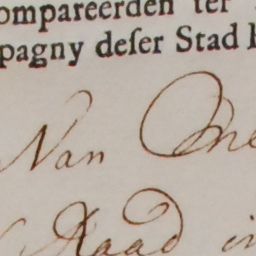 ompareerden ter
pagny deſer Stad
Van Me
Raad in